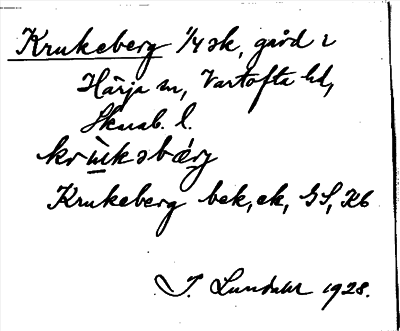 Krukeberg 1/4 sk, gård i
Härja sn, Vartofta hd,
Skarab. l.
krùksbǽrg
Krukeberg bek, ek, GS, Kb
I. Lundahl 1928.